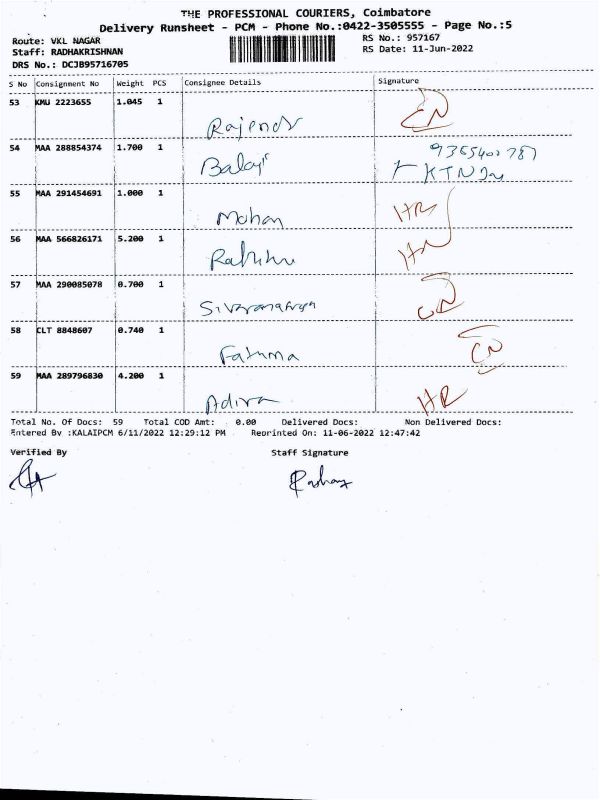 THE PROFESSIONAL COURIERS, Coimbatore
Delivery Runsheet - PCM - Phone No.:0422-3505555 - Page No.:5
Route: VKL NAGAR RS No.: 957167
Staff: RADHAKRISHNAN RS Date: 11-Jun-2022
DRS No.: DCJB95716705
S No Consignment No Weight PCS Consignee Details Signature
53 KMU 2223655 1.045 1
Rajendr CN
54 MAA 288854374 1.700 1
Balaji
55 MAA 291454691 1.000 1
Mohan HR
56 MAA 566826171 5.200 1
57 MAA 290085078 0.700 1
58 CLT 8848607 0.740 1
Fatima CN
59 MAA 289796830 4.200 1
Adira HR
Total No. Of Docs: 59 Total COD Amt: 0.00 Delivered Docs: Non Delivered Docs:
Entered By :KALAIPCM 6/11/2022 12:29:12 PM Reprinted On: 11-06-2022 12:47:42
Verified By Staff Signature